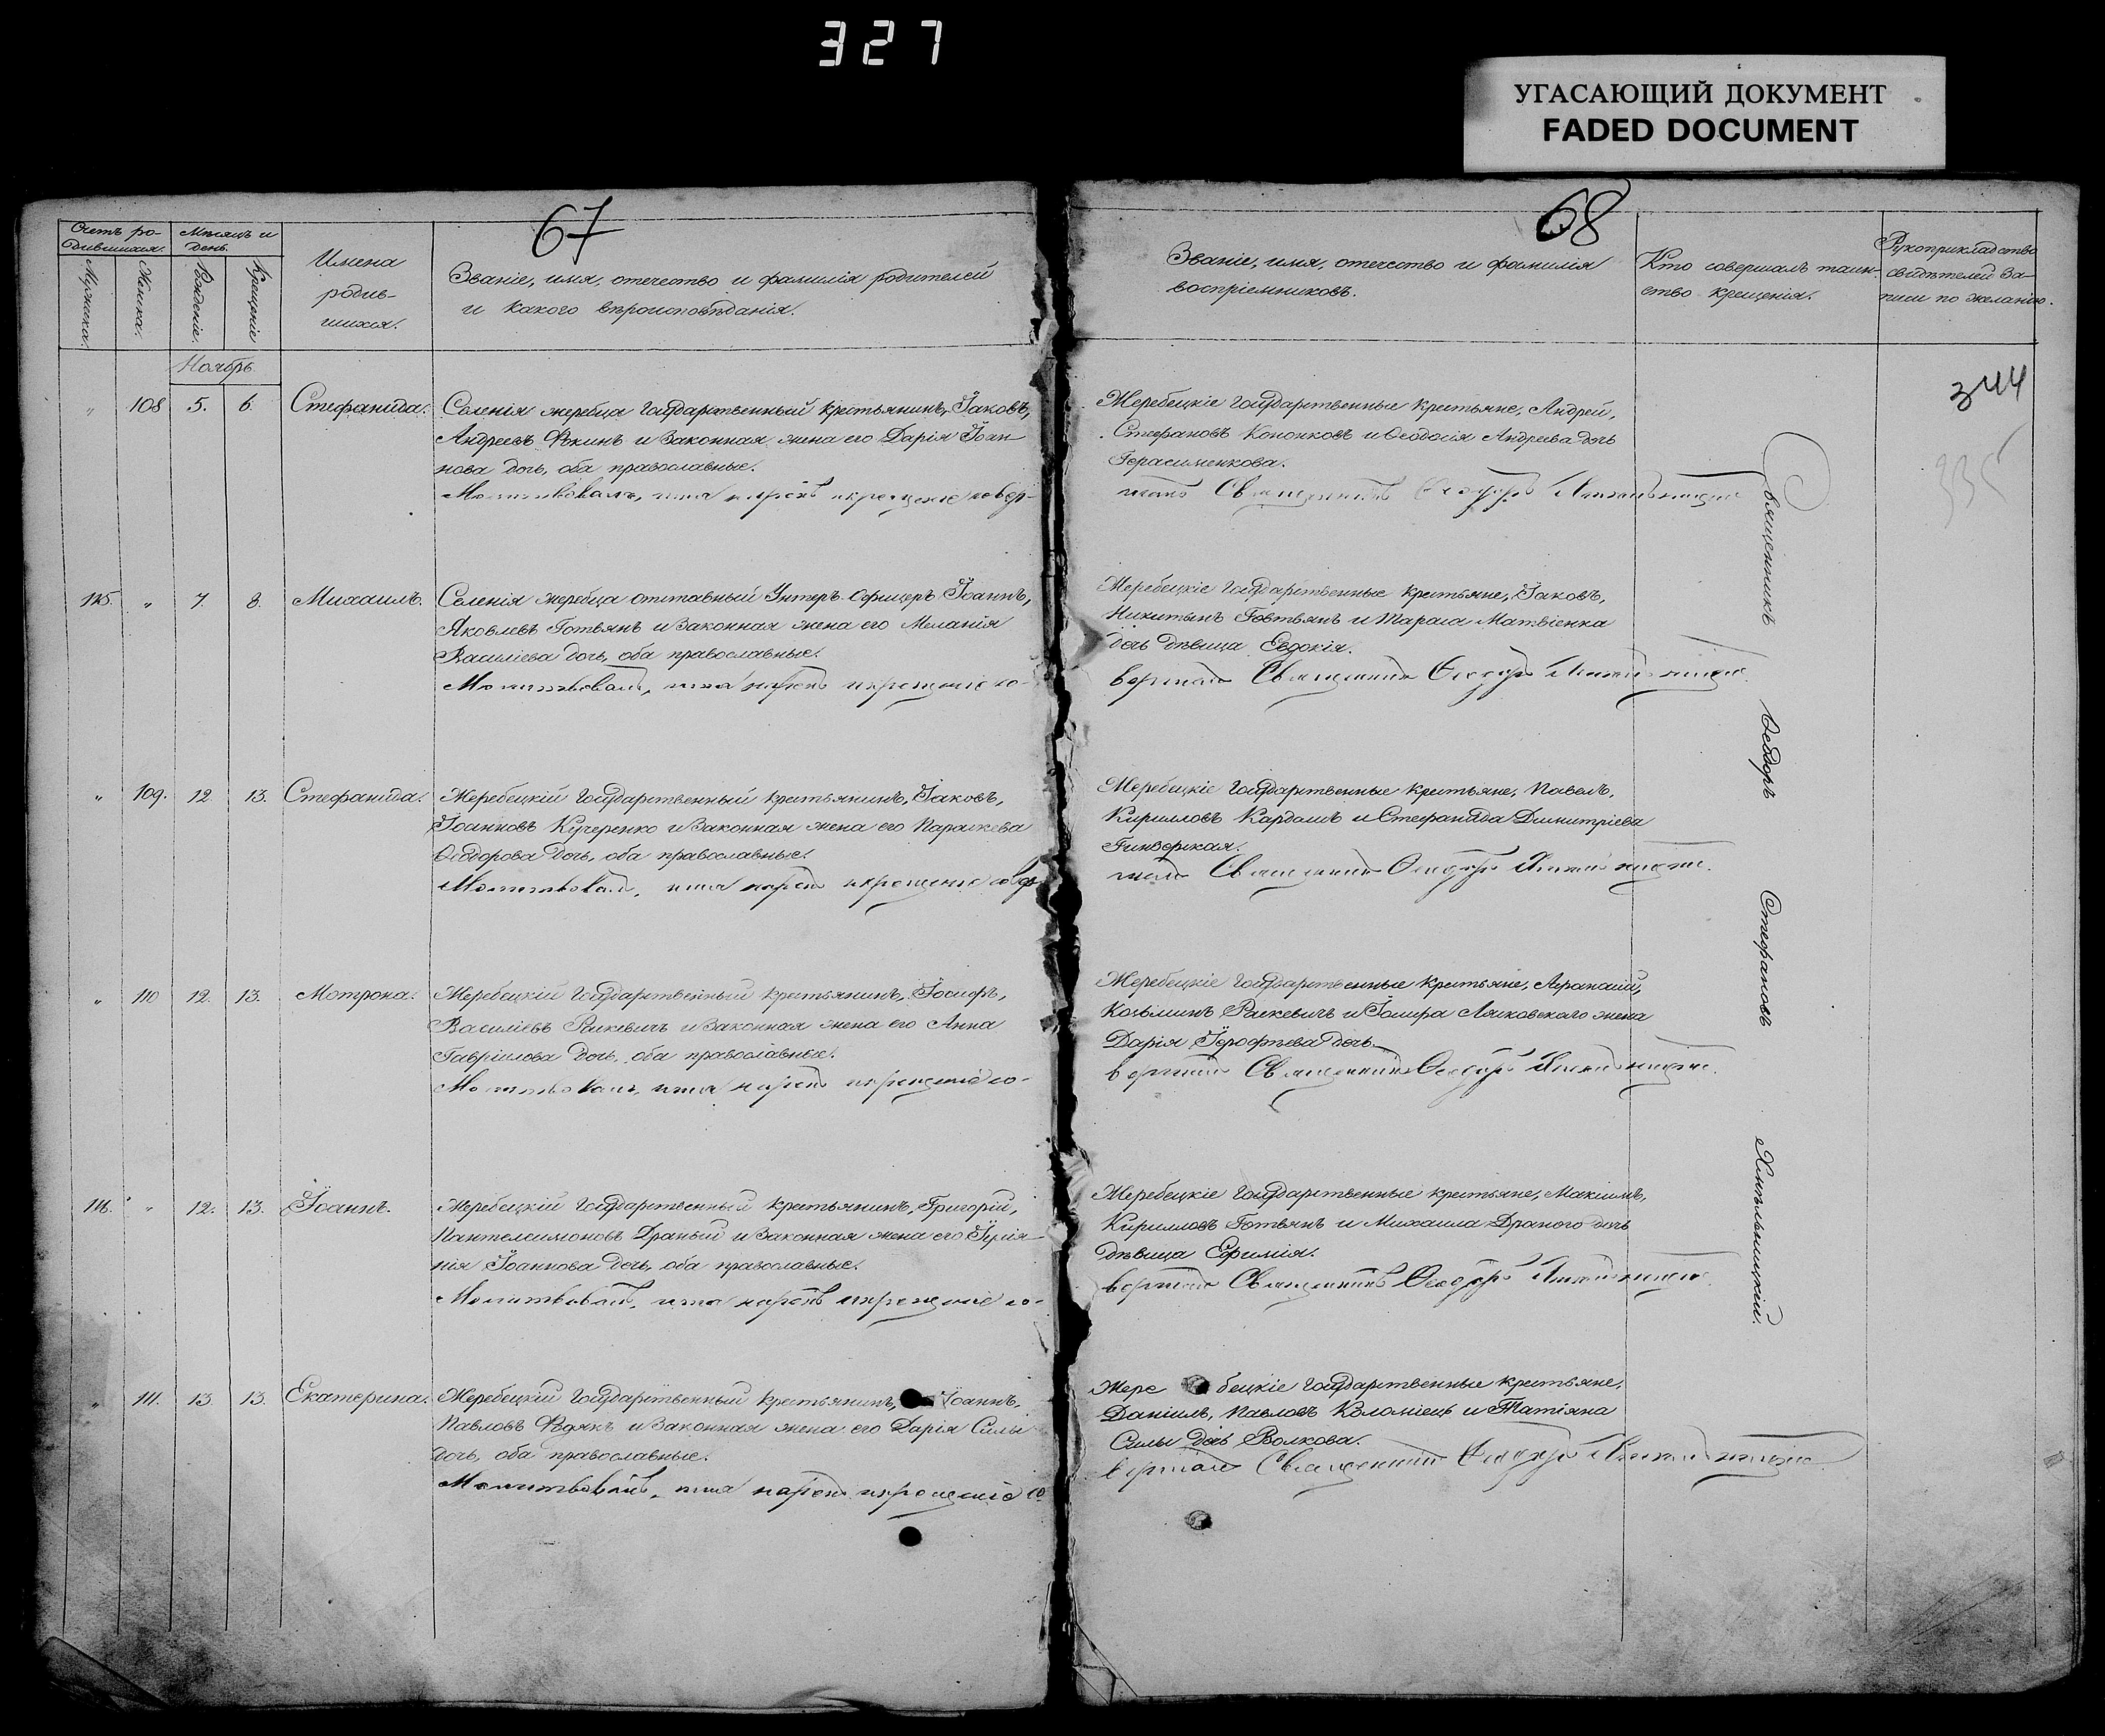 327
УГАСАЮЩИЙ ДОКУМЕНТ
FADED DOCUMENT
67
Счетъ ро-
дившихся.
Мѣсяцъ и
день.
Мужска.
Женска.
Рожденіе.
Крещеніе
Имена
родив-
шихся.
Званіе, имя, отечество и фамилія родителей
и какого вѣроисповѣданія.
Ноябрь.
„ 108 5. 6. Стефанида. Селенія жеребца Государственный крестьянинъ, Іаковъ,
Андреевъ Фокинъ и Законная жена его Дарія Іоан-
нова дочь, оба православные.
Молитвовалъ, имя нарекъ и крещеніе совер-
115. „ 7. 8. Михаилъ. Селенія жеребца отставный Унтеръ-Офицеръ Іоаннъ,
Яковлевъ Готвянъ и Законная жена его Меланія
Василіева дочь, оба православные.
Молитвовалъ, имя нарекъ и крещеніе со-
„ 109. 12. 13. Стефанида. Жеребецкій Государственный крестьянинъ, Іаковъ,
Іоанновъ Кучеренко и Законная жена его Параскева
Ѳеодорова дочь, оба православные.
Молитвовалъ, имя нарекъ и крещеніе совер-
„ 110 12. 13. Мотрона. Жеребецкій Государственный крестьянинъ, Іосифъ,
Василіевъ Раскевичъ и Законная жена его Анна
Гавріилова дочь, оба православные.
Молитвовалъ, имя нарекъ и крещеніе со-
116. „ 12. 13. Іоаннъ. Жеребецкій Государственный крестьянинъ, Григорій,
Пантелеимоновъ Драный и Законная жена его Іулія-
нія Іоаннова дочь, оба православные.
Молитвовалъ, имя нарекъ и крещеніе со-
„ 111. 13. 13. Екатерина. Жеребецкій Государственный крестьянинъ, Іоаннъ,
Павловъ и Законная жена его Дарія Силы
дочь, оба православные.
Молитвовалъ, имя нарекъ и крещеніе со
68
Званіе, имя, отечество и фамилія
воспріемниковъ.
Кто совершалъ таин-
ство крещенія.
Рукоприкладство
свидѣтелей За-
писи по желанію.
344
335
Жеребецкіе Государственные крестьяне, Андрей,
Стефановъ Кононковъ и Ѳеодосія Андреева дочь
Герасименкова.
шилъ Священникъ Ѳеодоръ Хмѣльницкій
Жеребецкіе Государственные крестьяне, Іаковъ,
Никитинъ Говтвянъ и Тараса Матвіенка
дочь дѣвица Евдокія.
вершилъ Священникъ Ѳеодоръ Хмѣльницкій
Жеребецкіе Государственные крестьяне, Павелъ,
Кирилловъ Кардашъ и Стефанида Димитріева
шилъ Священникъ Ѳеодоръ Хмѣльницкій.
Жеребецкіе Государственные крестьяне, Афанасій,
Козьминъ Раскевичъ и Ляховскаго жена
Дарія Іерофѣева дочь.
вершилъ Священникъ Ѳеодоръ Хмѣльницкій.
Жеребецкіе Государственные крестьяне, Максимъ,
Кирилловъ Готвянъ и Михаила Драного дочь
дѣвица Ефимія.
вершилъ Священникъ Ѳеодоръ Хмѣльницкій.
Жеребецкіе Государственные крестьяне,
Даніилъ, Павловъ Коломіецъ и Татіяна
Силы дочь Волкова.
вершилъ Священникъ Ѳеодоръ Хмѣльницкій
Священникъ Ѳеодоръ Стефановъ Хмѣльницкій.